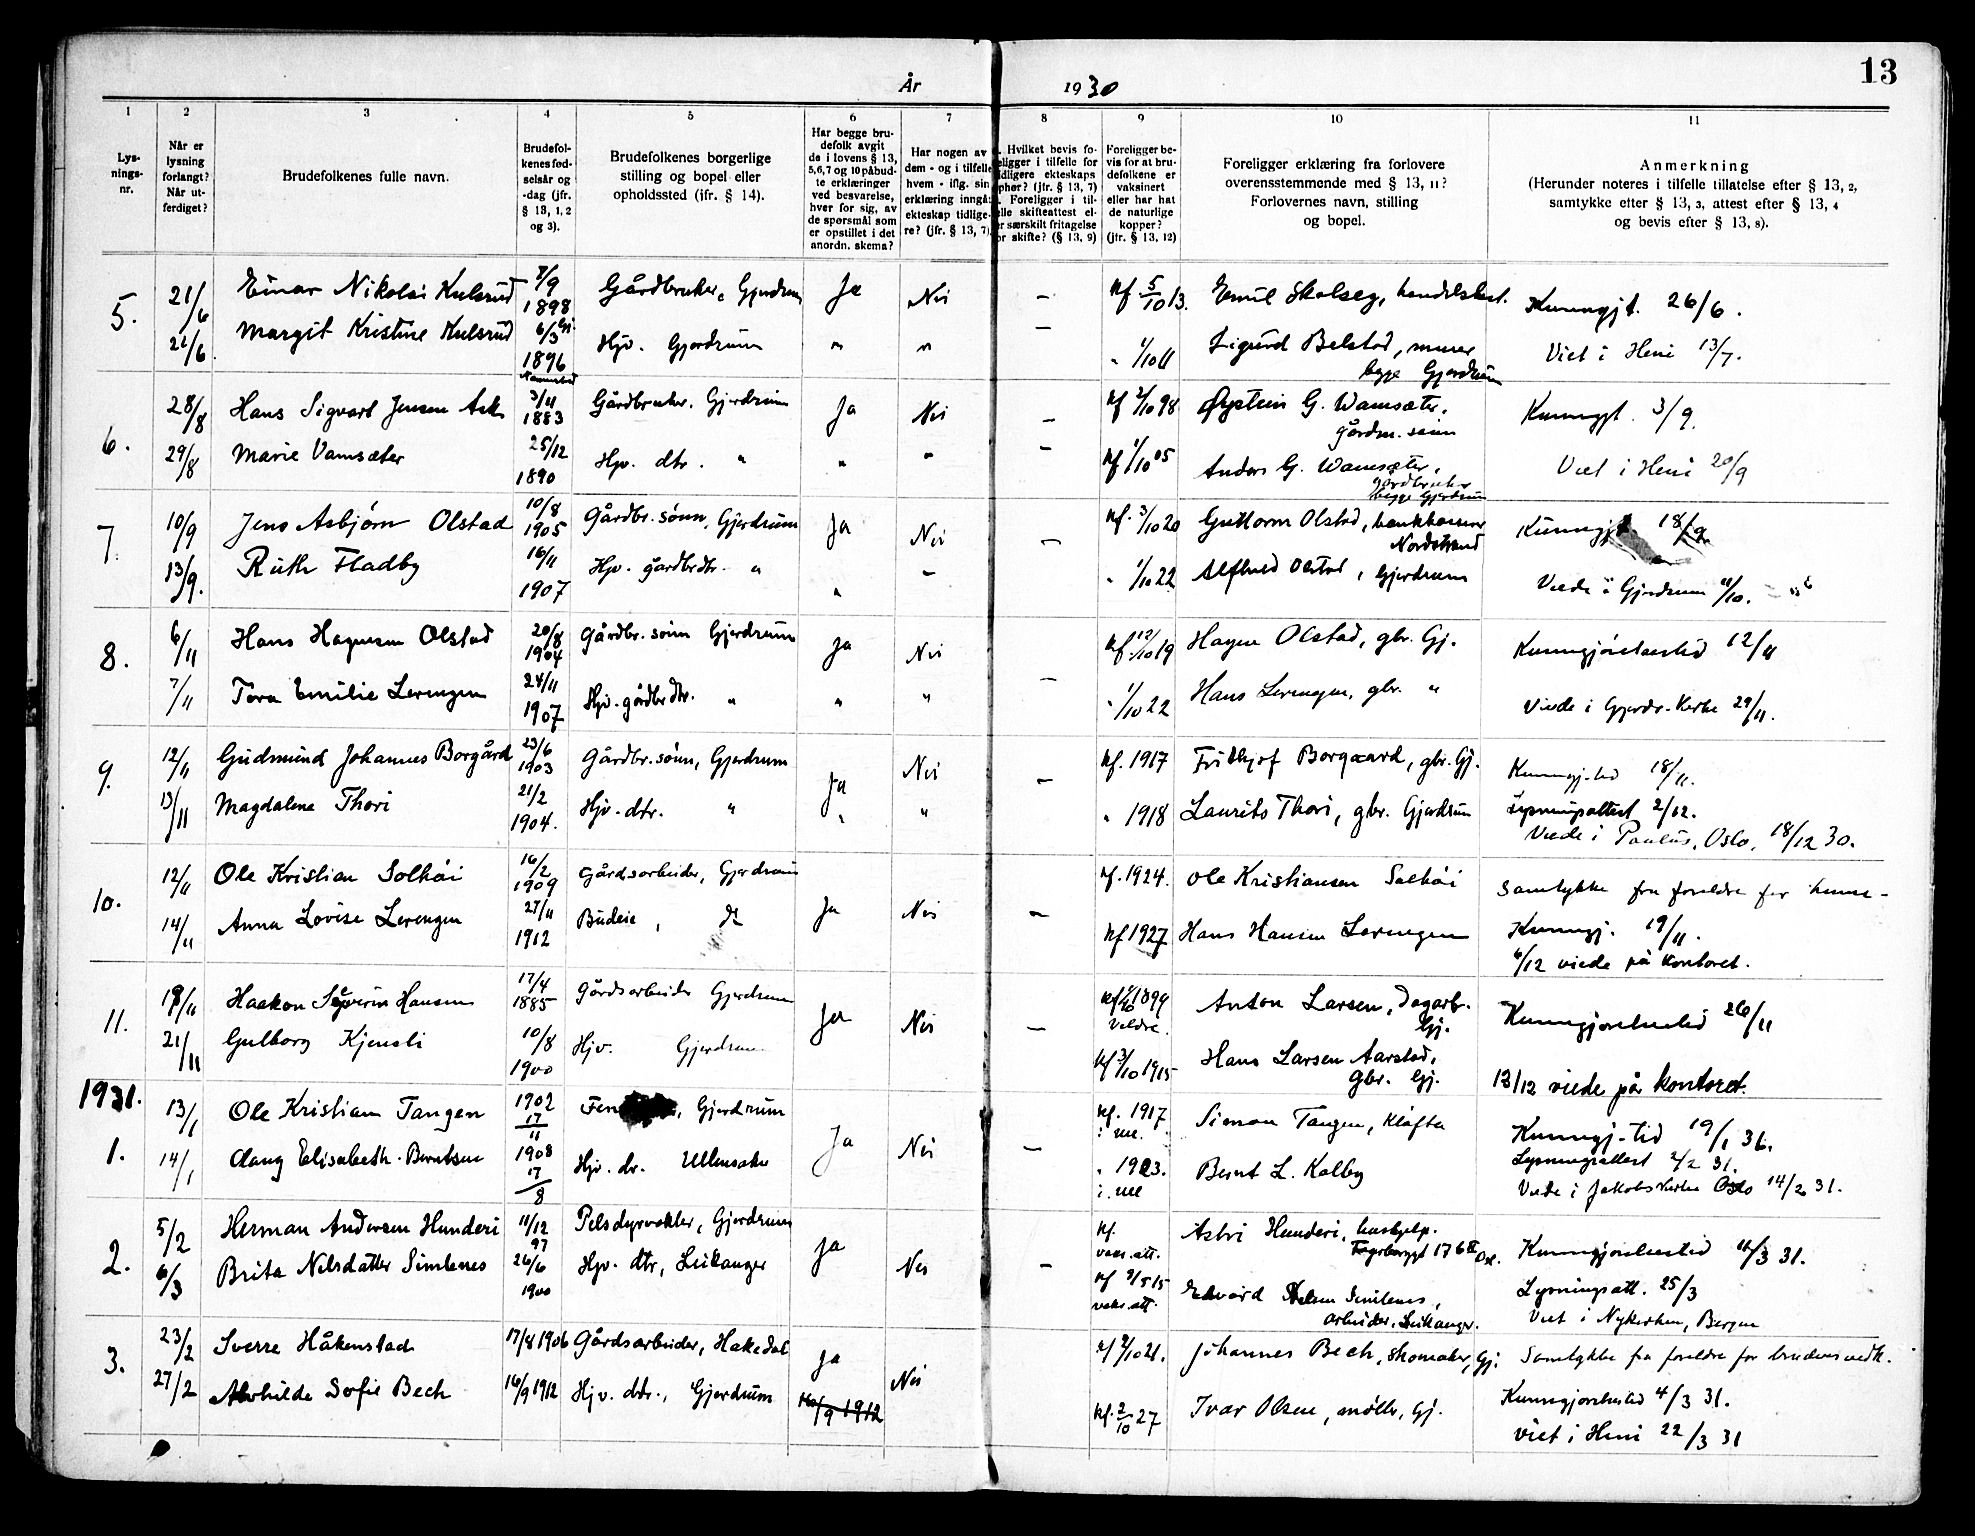 13
År 1930
1 2 3 4 5 6 7 8 9 10 11
Lysningsnr.
Når er lysning forlangt? Når utferdiget?
Brudefolkenes fulle navn.
Brudefolkenes fødselsår og -dag (jfr. § 13, 1, 2 og 3).
Brudefolkenes borgerlige stilling og bopel eller opholdssted (jfr. § 14).
Har begge brudefolk avgit de i lovens § 13, 5,6,7 og 10 påbudte erklæringer ved besvarelse, hver for sig, av de spørsmål som er opstillet i det anordn. skema?
Har nogen av dem - og i tilfelle hvem - iflg. sin erklæring inngå ekteskap tidligere? (jfr. § 13, 7)
Hvilket bevis fo eligger i tilfelle for idligere ekteskaps pher? (jfr. § 13, 7) Foreligger i tilelle skifteattest eler særskilt fritagelse or skifte? (§ 13, 9)
Foreligger bevis for at brudefolkene er vaksinert eller har hat de naturlige kopper? (jfr. § 13, 12)
Foreligger erklæring fra forlovere overensstemmende med § 13, 11? Forlovernes navn, stilling og bopel.
Anmerkning (Herunder noteres i tilfelle tillatelse efter § 13, 2, samtykke efter § 13, 3, attest efter § 13, 4 og bevis efter § 13, 8).
5. 21/6 Einar Nikolai Kulsrud 7/9 1898 Gårdbruker, Gjerdrum Ja Nei — Kf 5/10 13. Emil Skolseg, Kunngjt. 26/6.
21/6 Margit Kristine Kulsrud 6/3 1896 Hjv. Gjerdrum " " — " 1/10 11 Sigurd Belstad, murer begge Gjerdrum Viet i Heni 13/7.
6. 28/8 Hans Sigvart Jensen Ask 3/11 1883 Gårdbruker. Gjerdrum Ja Nei — Kf 2/10 98 Øystein G. Wamsæter, gårdm. sønn Kunngjt. 3/9.
29/8 Marie Vamsæter 25/12 1890 Hjv. dtr. " " " — Kf 1/10 05 Anders G. Wamsæter, gårdbruker begge Gjerdrum Viet i Heni 20/9
7. 10/9 Jens Asbjørn Olstad 10/8 1905 Gårdbr. sønn, Gjerdrum Ja Nei — Kf. 3/10 20 Guttorm Olstad, bankkasserer Nordstrand Kunngjt 18/9.
13/9. Ruth Fladby 16/11 1907 Hjv. gårdbrdtr. " " — " 1/10 22 Alfhild Olstad, Gjerdrum Viede i Gjerdrum 11/10.
8. 6/11 Hans Hagensen Olstad 20/8 1904 Gårdbr. sønn Gjerdrum Ja Nei — Kf. 12/10 19 Hagen Olstad, gbr. Gj. Kunngjørelsestid 12/11
7/11 Tora Emilie Lerengen 24/11 1907 Hjv. gårdbrdtr. " " " " 1/10 22 Hans Lerengen, gbr. " Viede i Gjerdr. Kirke 29/11.
9. 12/11 Gudmund Johannes Borgård 23/6 1903 Gårdbr. sønn, Gjerdrum Ja Nei — Kf. 1917 Fridtjof Borgaard, gbr. Gj. Kunngj.tid 18/11.
13/11 Magdalena Thori 21/2 1904. Hjv. dtr. " " " " 1918 Laurits Thori, gbr. Gjerdrum Lysningsattest 2/12.
Viede i Paulus, Oslo, 18/12 30.
10. 12/11 Ole Kristian Solhøi 16/2 1909 Gårdsarbeider, Gjerdrum Ja Nei — Kf. 1924. Ole Kristiansen Solhøi Samtykke fra foreldre for henne -
14/11 Anna Lovise Lerengen 27/11 1912 Budeie, do Kf 1927 Hans Hansen Lerengen Kunngj. 19/11.
6/12 viede på kontoret.
11. 19/11 Haakon Severin Hansen 17/4 1885 Gårdsarbeider Gjerdrum Ja Nei — 1899 Veldre. Anton Larsen, Dagarb. Gj. Kunngjørelsestid 26/11
21/11 Gulborg Kjensli 10/8 1900 Hjv. Gjerdrum. Kf 3/10 1915 Hans Larsen Aarstad, Gbr. Gj. 13/12 viede på kontoret.
1931.
1. 13/1 Ole Kristian Tangen 1902 17/11 Gjerdrum Ja Nei — Kf. 1917 Simon Tangen, Kløfta Kunngj-tid 19/1 31.
14/1 Aaug Elisabeth Berntsen 1908 17/8 Hjv. dr. Ullensaker " 1923. Bernt L. Kalby Lysningsattest 2/2 31.
Viede i Jakobskirke Oslo 14/2 31.
2. 5/2 Herman Andersen Hunderi 11/12 97 Pelsdyrvokter, Gjerdrum Ja Nei — Kf. vaks. att. Astri Hunderi, hushjelp. Fagerborggt 17 6 II Osl. Kunngjørelsestid 11/3 31.
6/3 Brita Nilsdatter Simlenes 26/6 1900 Hjv. dtr, Leikanger Kf 9/5 15 vaks. att. Edvard Nelsen Simlenes, arbeider, Leikanger. Lysningsatt. 25/3
Viet i Nykirken, Bergen
3. 23/2 Sverre Håkenstad 17/8 1906 Gårdsarbeider, Hakedal Ja Nei Kf 2/10 21. Johannes Bech, skomaker, Gj. Samtykke fra foreldre for brudens vedk.
27/2 Alvhilde Sofie Bech 16/9 1912 Hjv. dtr., Gjerdrum 16/9 1912 Kf. 2/10 27 Ivar Olsen, møller, Gj. Kunngjørelsestid 4/3 31.
Viet i Heni 22/3 31